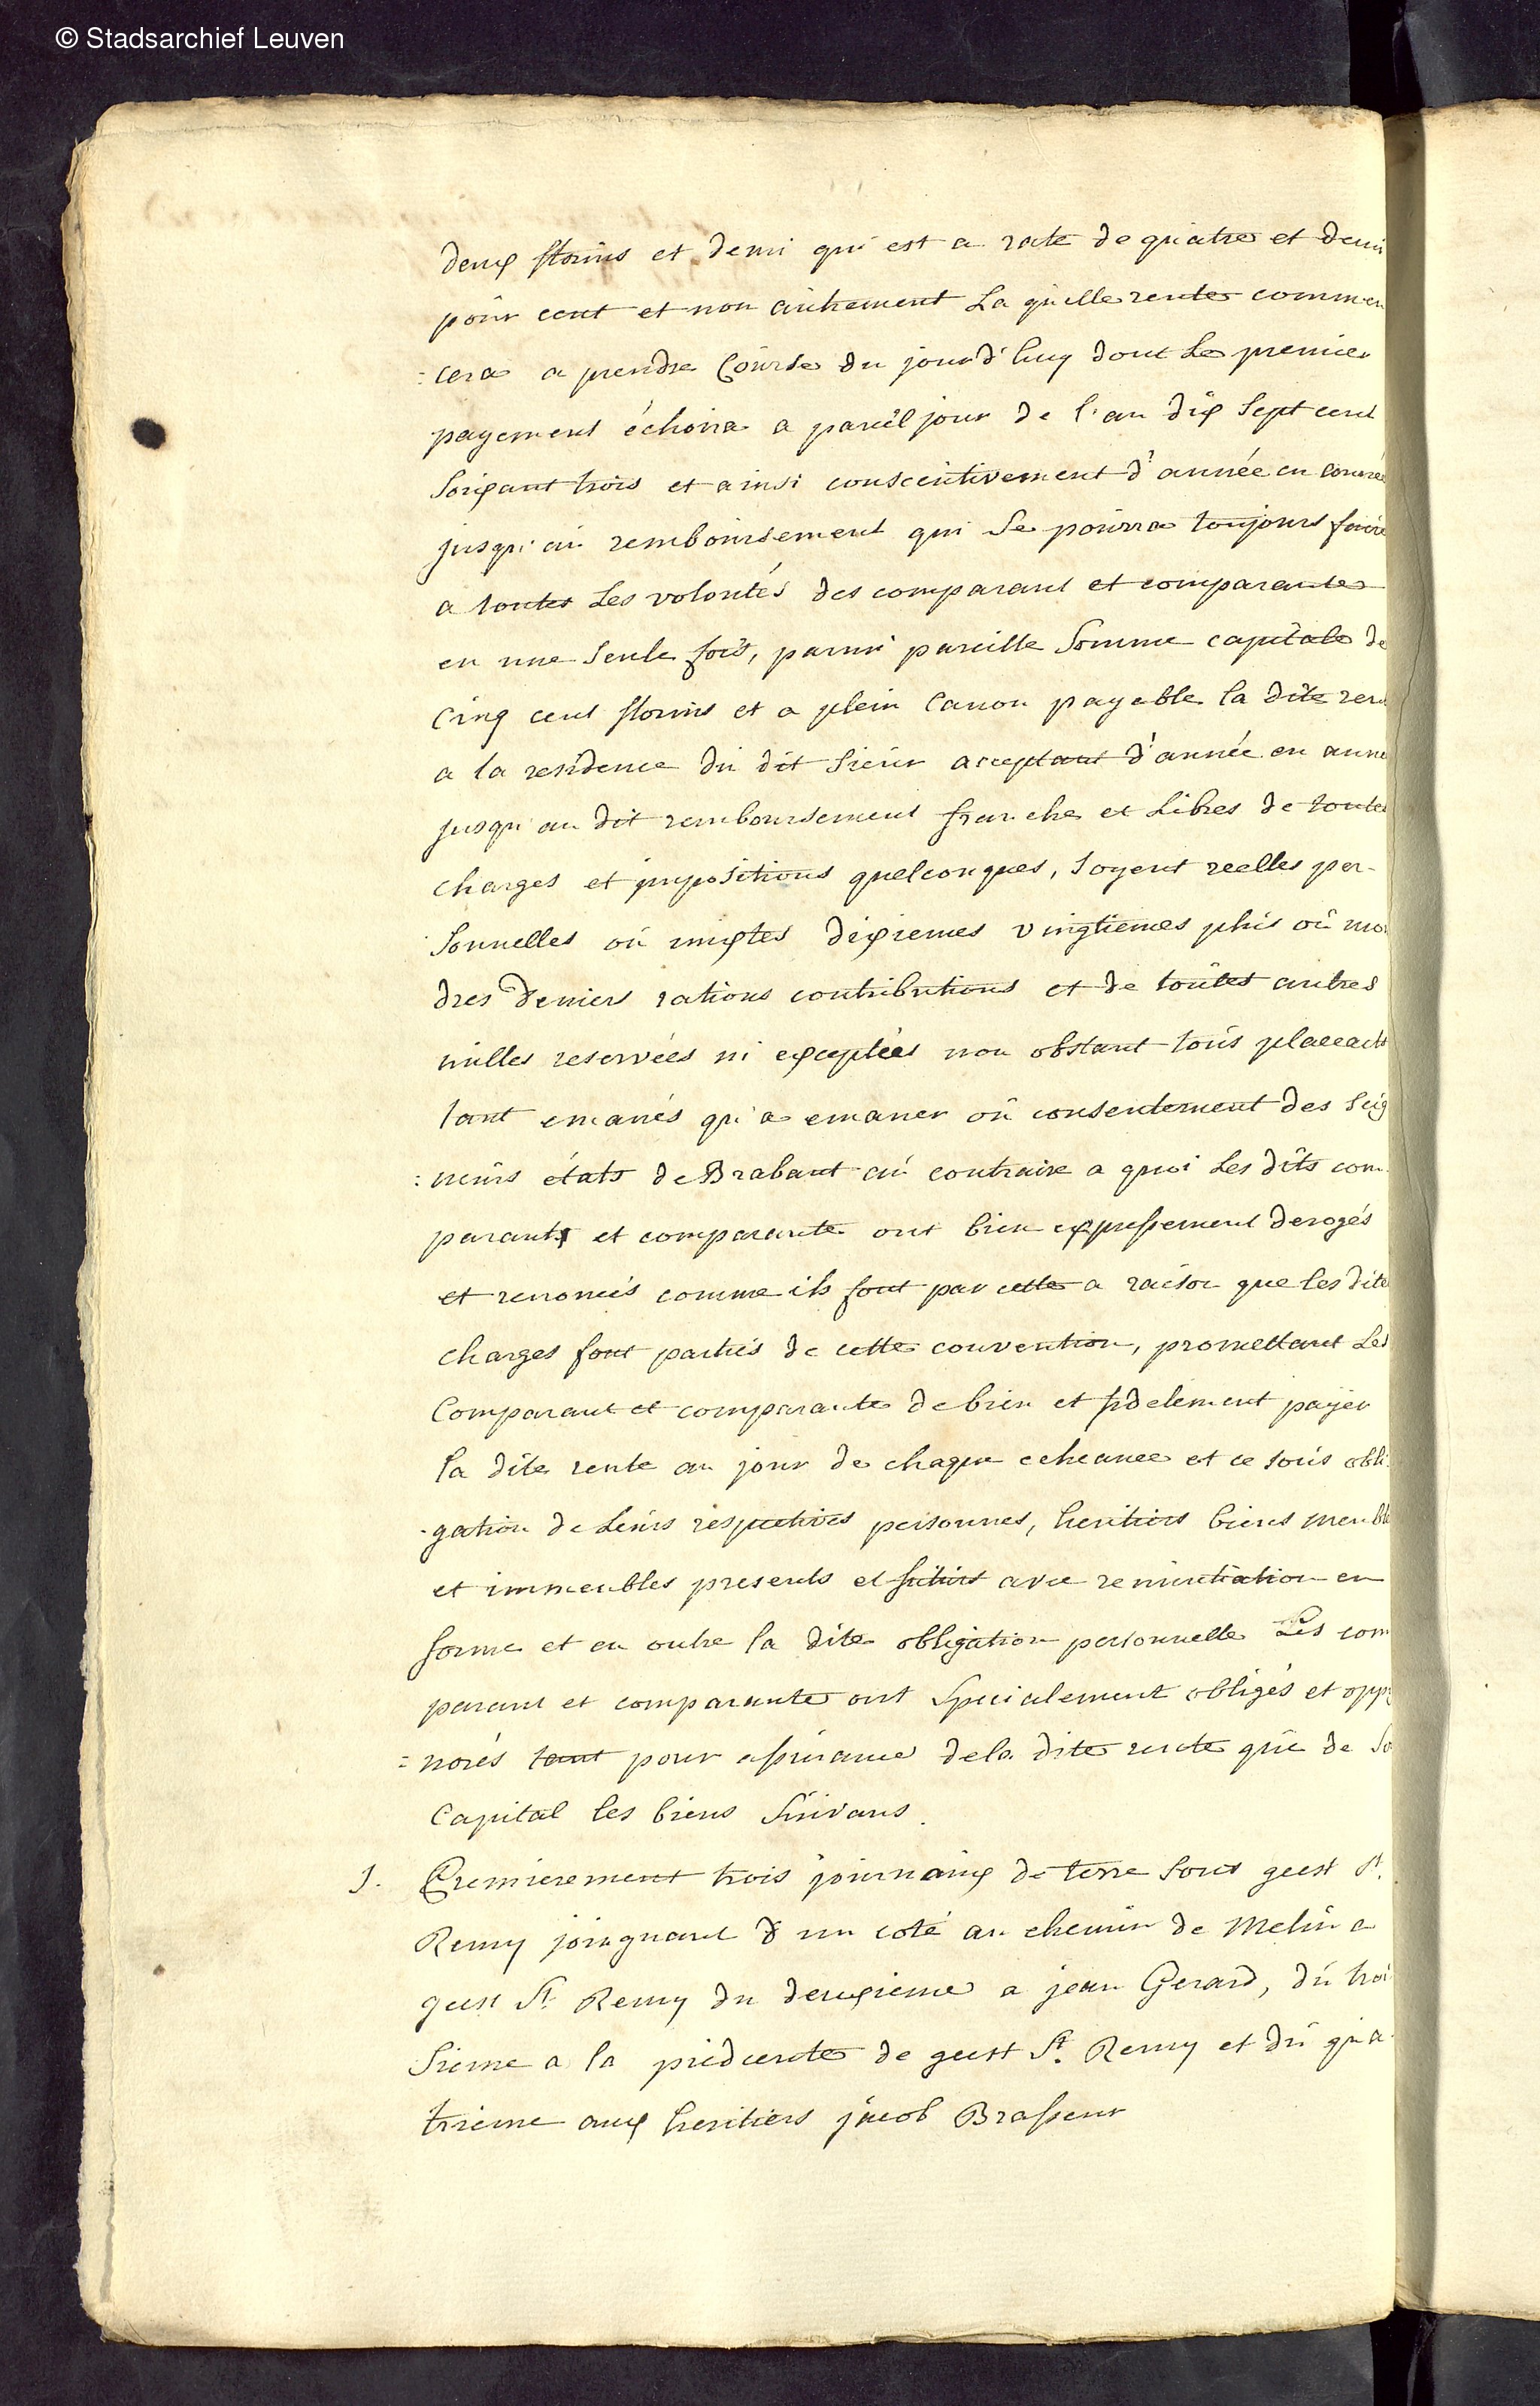 © Stadsarchief Leuven
deux florins et demi qui est a rate de quatre et demi
pour cent et non autrement La quelle rente commen
:cera a prendre Course du jourd'huy dont Le premier
payement échoira a pareil jour de l'an dix Sept cent
Soixant trois et ainsi consecutivement d'année en
jusqu'au remboursement qui Se pourra toujours faire
a toutes Les volontés des comparant et comparante
en une Seule fois, parmi pareille Somme capitale de
Cinq cent florins et a plein Canon payable la dite ren
a la residence du dit Sieur acceptant d'année en anné
jusqu'au dit remboursement franche et Libres de toutes
charges et impositions quelconques, Soyent reelles per-
sonnelles ou mixtes dixiemes vingtiemes plus ou moi
dres deniers rations contributions et de toutes autres
nulles reservées ni exceptées non obstant tous placcarts
tant emanés qu'a emaner ou consentement des Seig
:neurs états de Brabant au contraire a quoi Les dits com
parants et comparante ont bien expressement derogés
et renoncés comme ils font par cette a raison que les dite
charges font partiés de cette convention, promettant Les
Comparant et comparante de bien et fidelement payer
la dite rente au jour de chaque echeance et ce sous obli
-gation de Leurs respectives personnes, heritiers biens meuble
et immeubles presents et futurs avec renuntiation en
forme et en outre la dite obligation personnelle Les com
parant et comparante ont Specialement obligés et oppi
=norés tant pour assurance de la dite rente que de So
Capital les biens Suivans.
1. Premierement trois journaux de terre Sous geest St.
Remy joingnant d'un coté au chemin de Melin a
geest St. Remy du deuxieme a jean Gerard, du troi
Sieme a la de geest St. Remy et du qua
trieme aux heritiers jacob Brasseur